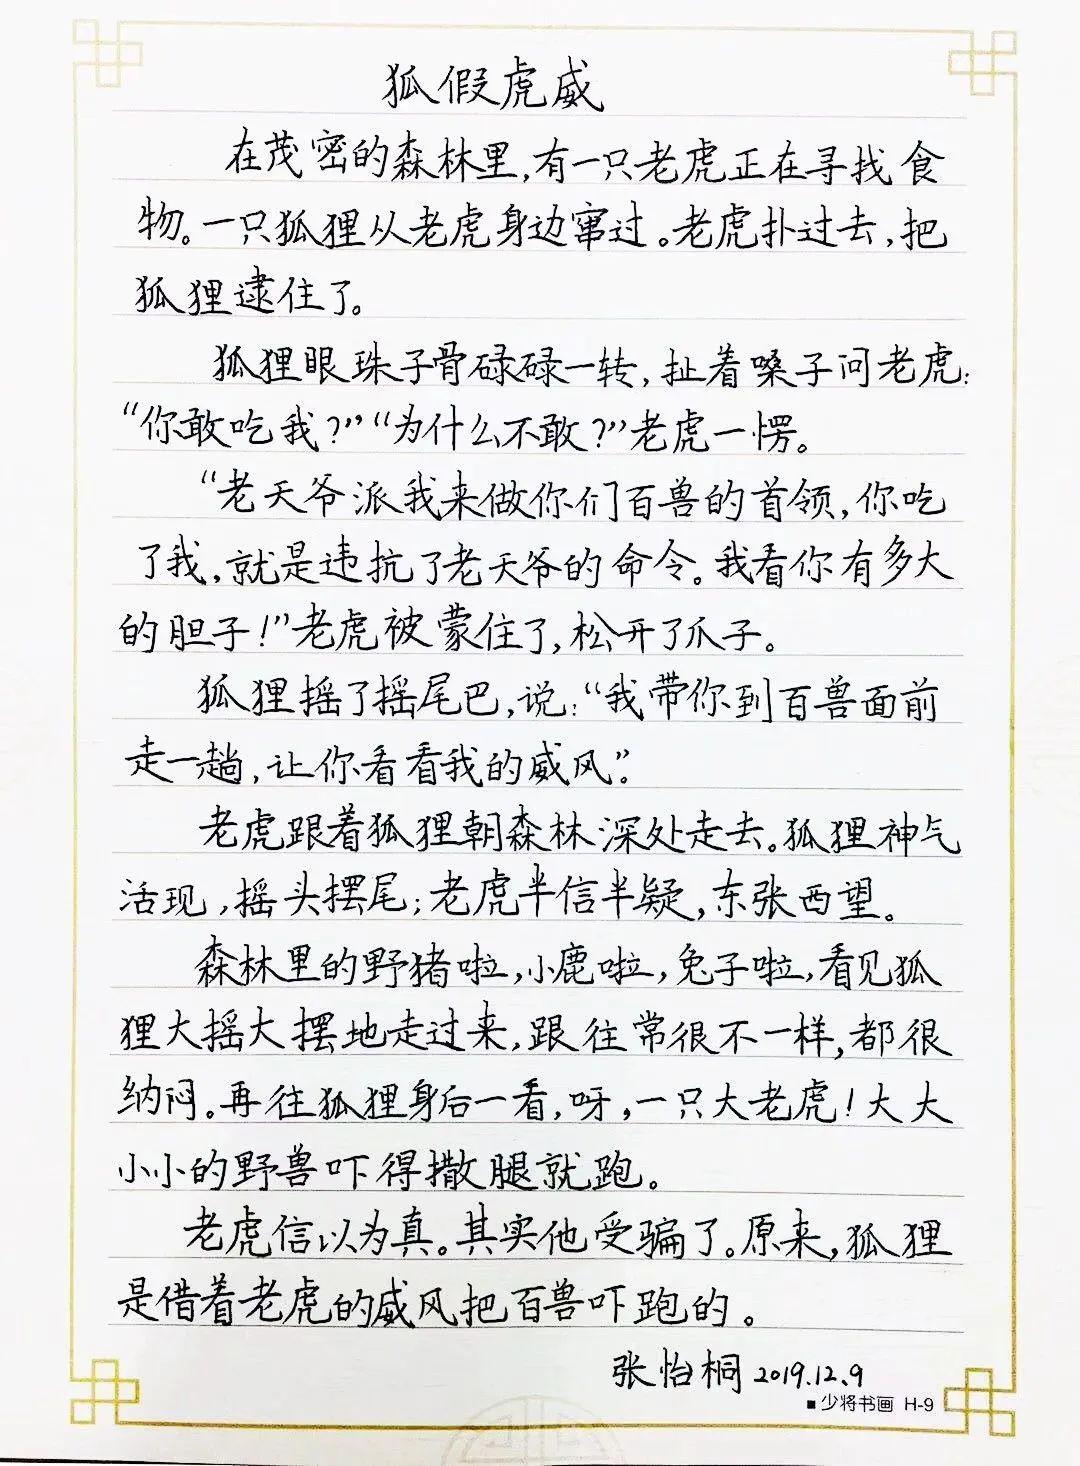 狐假虎威
在茂密的森林里,有一只老虎正在寻找食
物。一只狐狸从老虎身边窜过。老虎扑过去,把
狐狸逮住了。
狐狸眼珠子骨碌碌一转,扯着嗓子问老虎:
“你敢吃我?”“为什么不敢?”老虎一愣。
“老天爷派我来做你们百兽的首领,你吃
了我,就是违抗了老天爷的命令。我看你有多大
的胆子!”老虎被蒙住了,松开了爪子。
狐狸摇了摇尾巴,说:“我带你到百兽面前
走一趟,让你看看我的威风”。
老虎跟着狐狸朝森林深处走去。狐狸神气
活现,摇头摆尾;老虎半信半疑,东张西望。
森林里的野猪啦,小鹿啦,兔子啦,看见狐
狸大摇大摆地走过来,跟往常很不一样,都很
纳闷。再往狐狸身后一看,呀,一只大老虎!大大
小小的野兽吓得撒腿就跑。
老虎信以为真。其实他受骗了。原来,狐狸
是借着老虎的威风把百兽吓跑的。
张怡桐 2019.12.9
■少将书画 H-9